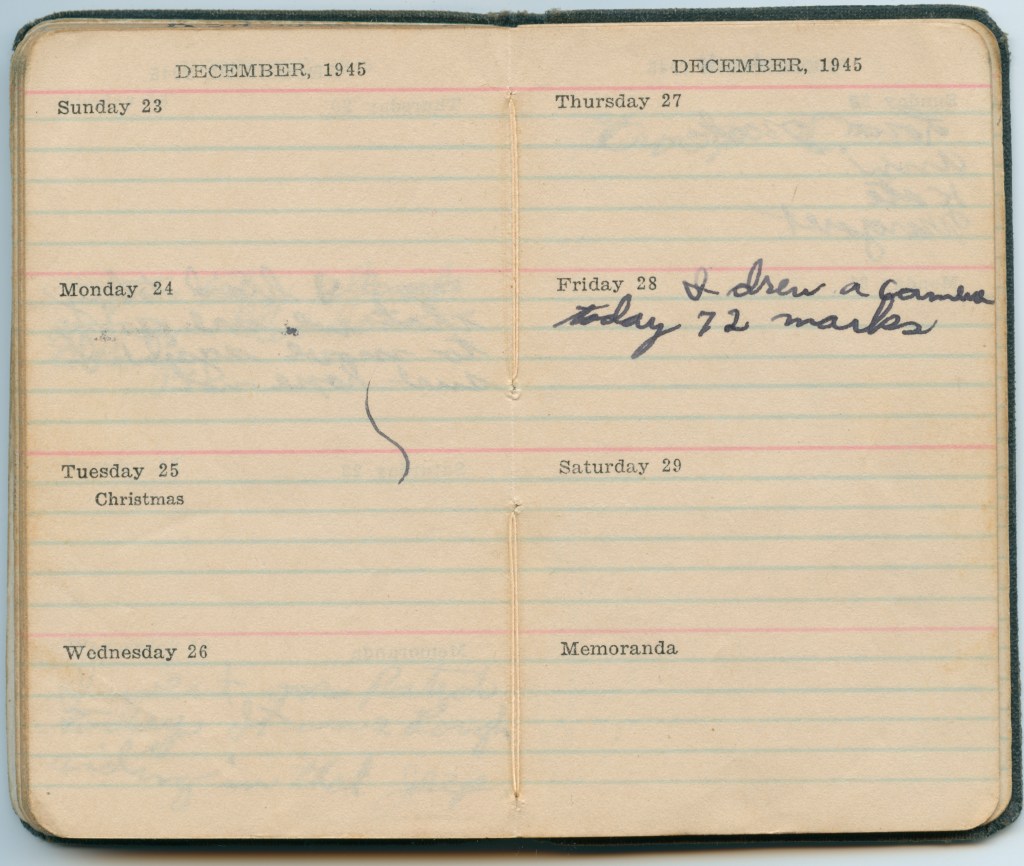 DECEMBER, 1945
Sunday 23
Monday 24
Tuesday 25
Christmas
Wednesday 26
DECEMBER, 1945
Thursday 27
Friday 28 I drew a camera
today 72 marks
Saturday 29
Memoranda